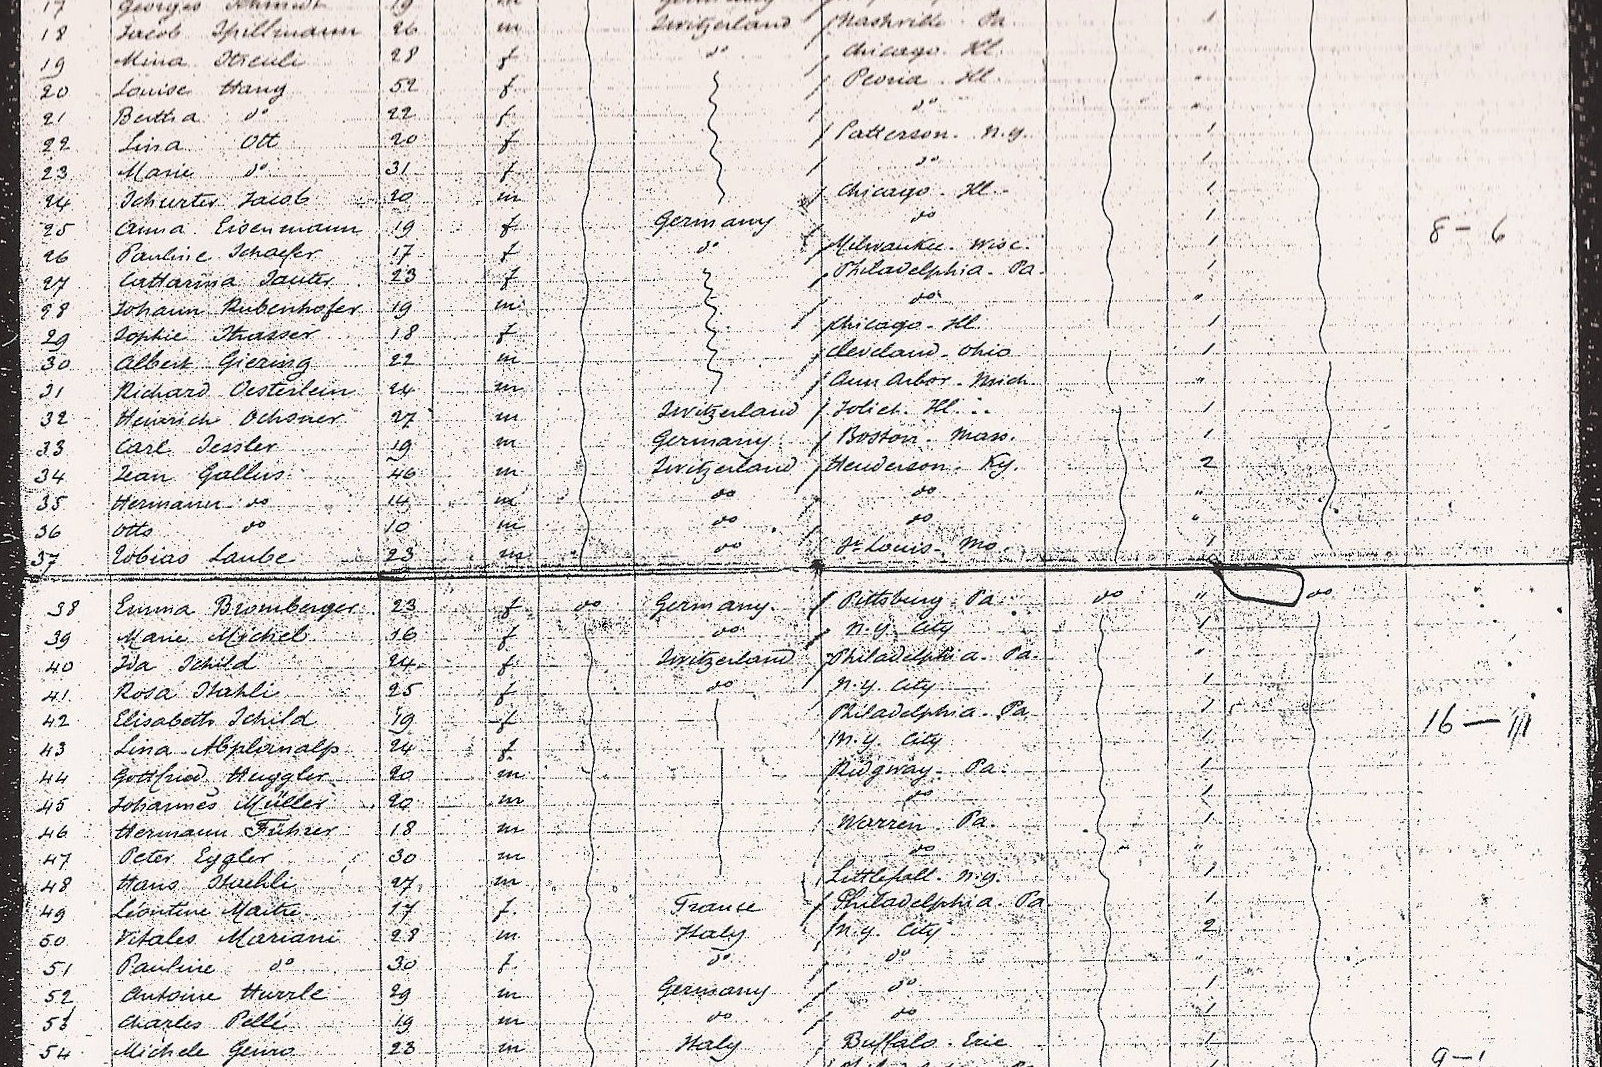 17 Georges Schmidt 19 m Germany
18 Jacob Spillmann 26 m Switzerland / Nashville. Pa. 1
19 Mina Streuli 28 f do / Chicago. Ill. "
20 Louise Hany 52 f / Peoria. Ill. "
21 Bertha do 22 f / do "
22 Lina Ott 20 f / Patterson. N.Y. 1
23 Marie do 31 f / do 1
24 Schurter Jacob 20 m / Chicago. Ill. 1
25 Anna Eisenmann 19 f Germany / do 1 8 - 6
26 Pauline Schaefer 17 f do / Milwaukee. Wisc. 1
27 Catharina Sauter 23 f / Philadelphia. Pa. 1
28 Johann Rubenhofer 19 m / do "
29 Sophie Strasser 18 f / Chicago. Ill. 1
30 Albert Giering 22 m / Cleveland. Ohio 1
31 Richard Oesterlein 24 m / Ann Arbor. Mich "
32 Heinrich Ochsner 27 m Switzerland / Joliet. Ill. 1
33 Carl Jessler 19 m Germany / Boston. Mass. 1
34 Jean Gallus 46 m Switzerland / Henderson. Ky. 2
35 Hermann do 14 m do / do "
36 Otto do 10 m do / do "
37 Tobias Laube 23 m do / St Louis. Mo. 1
38 Emma Bromberger 23 f do Germany. / Pittsburg. Pa. do " do
39 Marie Michel 16 f do / N.Y. City 1
40 Ida Schild 24 f Switzerland / Philadelphia. Pa. "
41 Rosa Stahli 25 f do / N.Y. City 1
42 Elisabeth Schild 19 f Philadelphia. Pa. 1 16 - III
43 Lina Abplanalp 24 f N.Y. City 1
44 Gottfried Huggler 20 m Ridgway. Pa. 1
45 Johannes Müller 20 m do 1
46 Hermann Führer 18 m Warren. Pa. 1
47 Peter Eggler 30 m do "
48 Hans Staehli 27 m / Littlefall. N.Y. 1
49 Léontine Maitre 17 f. Franse / Philadelphia. Pa 1
50 Vitales Mariani 28 m Italy / N.Y. City 2
51 Pauline do 30 f. do / do "
52 Antoine Hurrle 29 m Germany / do 1
53 Charles Pellé 19 m do / do 1
54 Michele Genro 23 m Italy / Buffalo. Erie 1 9 - 1